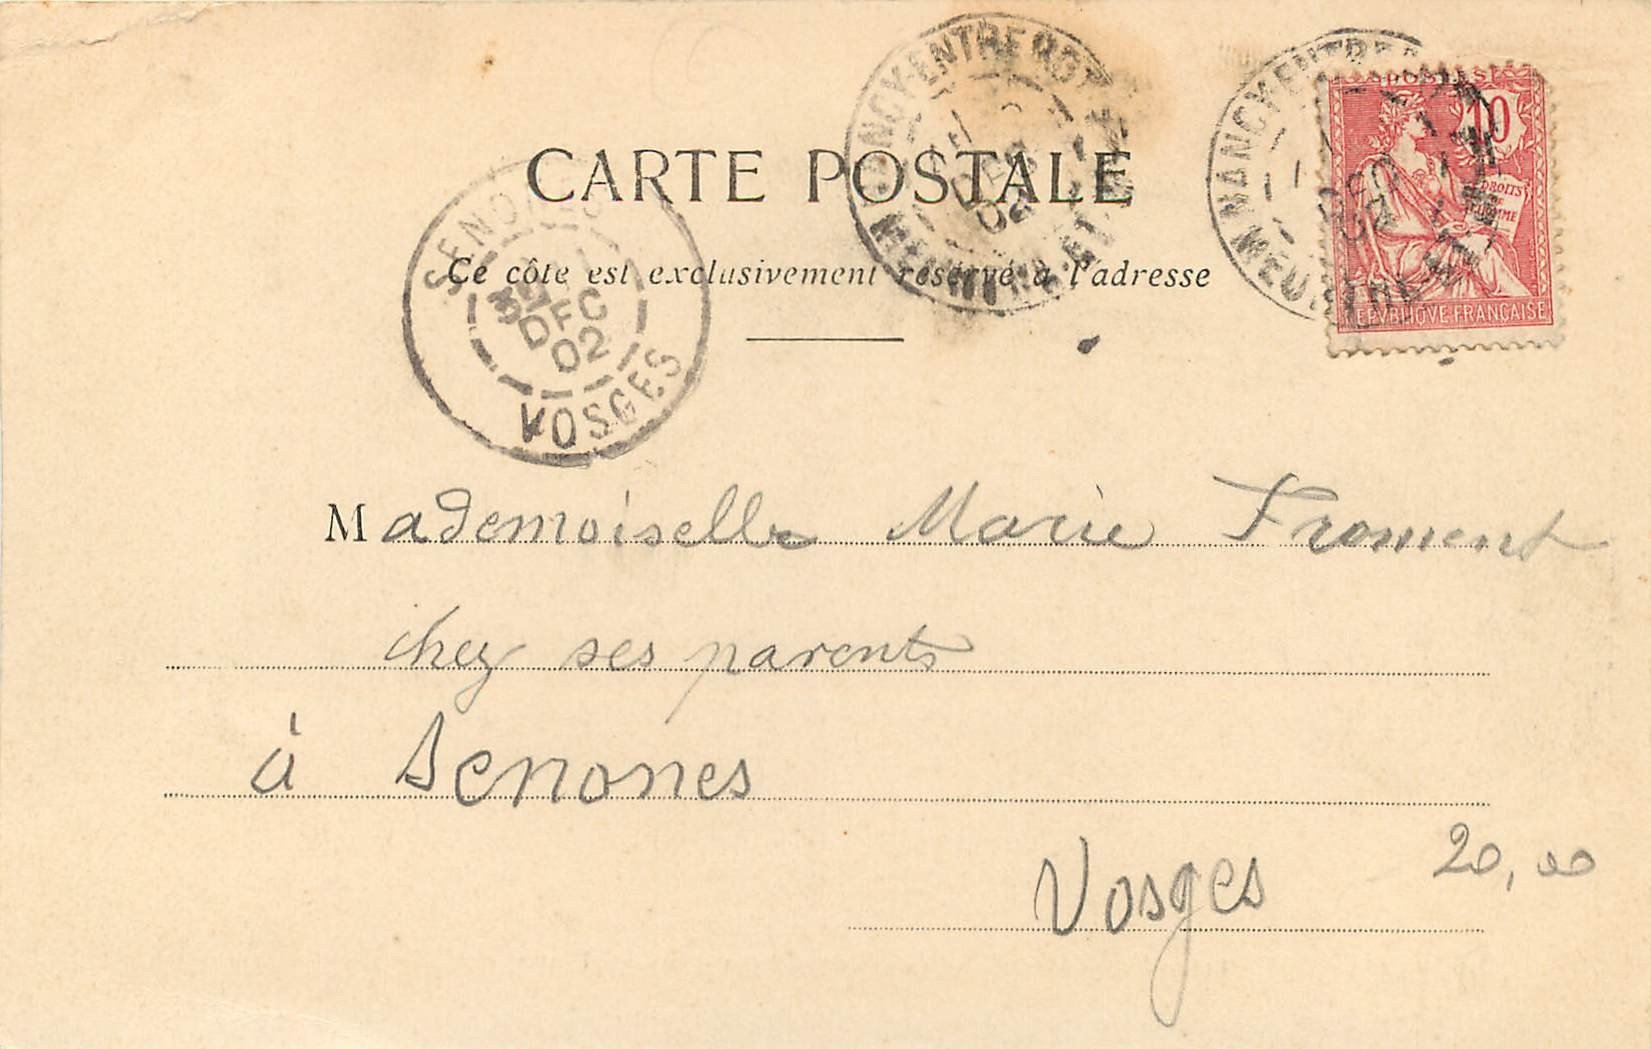 CARTE POSTALE
Ce côté est exclusivement réservé à l'adresse
NANCY-ENTREPOT
DEC
02
NANCY-ENTREPOT
POSTES
10
DROITS
DE
L'HOMME
REPVBLIQVE FRANÇAISE
SENONES
DEC
02
VOSGES
Mademoiselle Marie Froment
chez ses parents
à Senones
Vosges
20,00